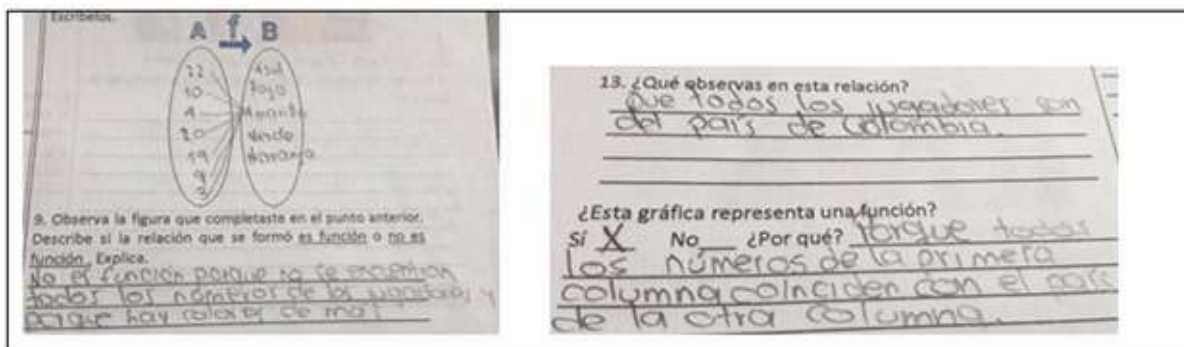 Escríbelos.
A f B
22 Azul
10 Rojo
4 Monito
20 Verde
19 Naranja
9
3
9. Observa la figura que completaste en el punto anterior.
Describe si la relación que se formó es función o no es
función. Explica.
No es función porque no se encuentran
todos los números de los jugadores y
porque hay colores de mas
13. ¿Qué observas en esta relación?
Que todos los jugadores son
del país de Colombia.
¿Esta gráfica representa una función?
Sí X No ¿Por qué? Porque todos
los números de la primera
columna coinciden con el país
de la otra columna.